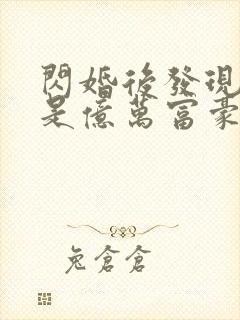 閃婚後發現
是億萬富豪
兔倉倉